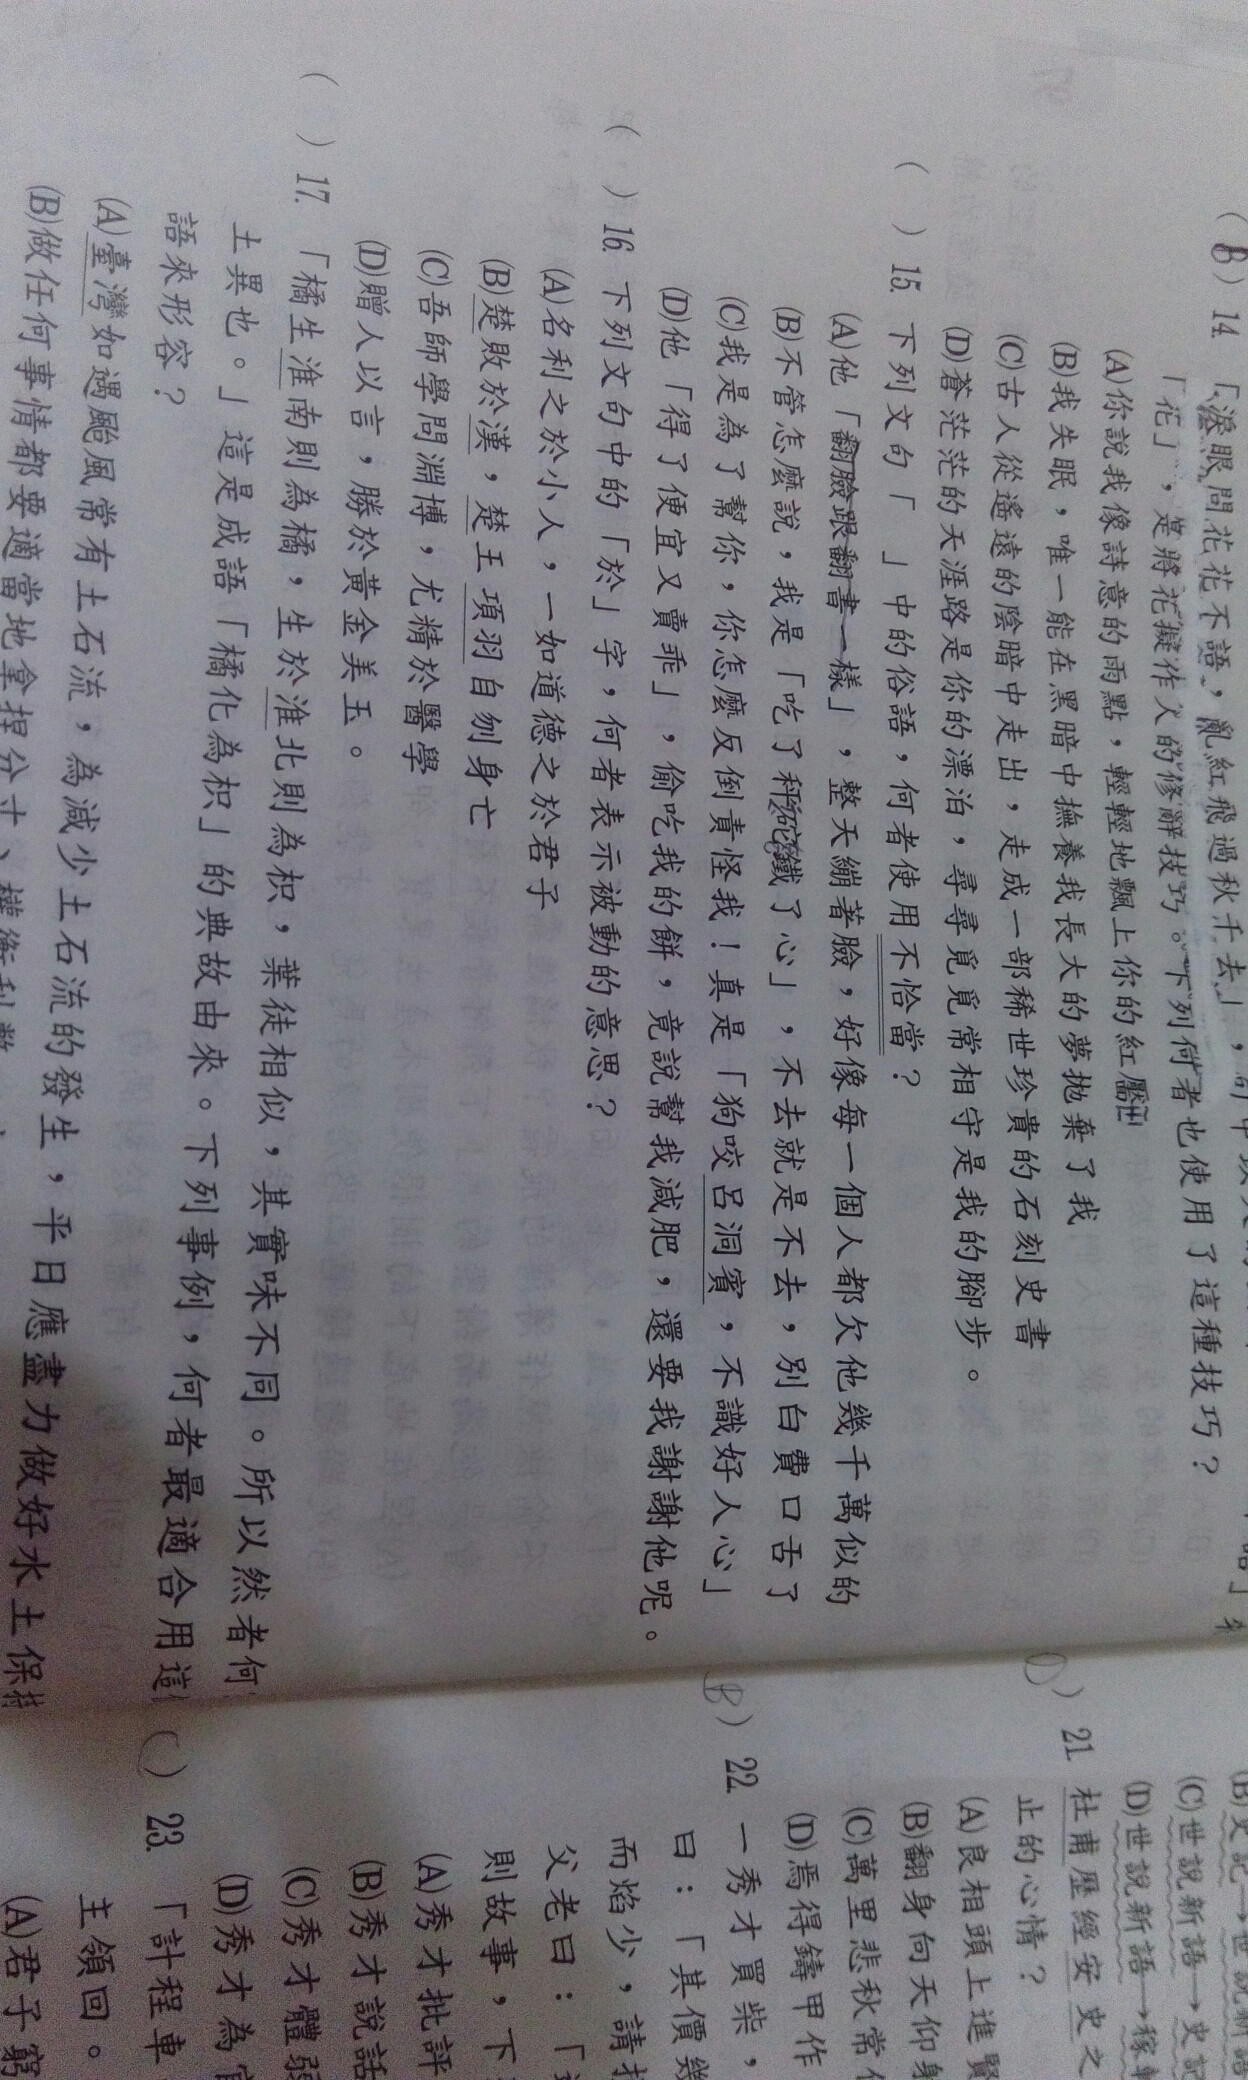 (B) 14. 「淚眼問花花不語，亂紅飛過秋千去」，
「花」，是將花擬作人的修辭技巧。下列何者也使用了這種技巧？
(A)你說我像詩意的雨點，輕輕地飄上你的紅靨
(B)我失眠，唯一能在黑暗中撫養我長大的夢拋棄了我
(C)古人從遙遠的陰暗中走出，走成一部稀世珍貴的石刻史書
(D)蒼茫茫的天涯路是你的漂泊，尋尋覓覓常相守是我的腳步。
( ) 15. 下列文句「 」中的俗語，何者使用不恰當？
(A)他「翻臉跟翻書一樣」，整天繃著臉，好像每一個人都欠他幾千萬似的
(B)不管怎麼說，我是「吃了秤砣鐵了心」，不去就是不去，別白費口舌了
(C)我是為了幫你，你怎麼反倒責怪我！真是「狗咬呂洞賓，不識好人心」
(D)他「得了便宜又賣乖」，偷吃我的餅，竟說幫我減肥，還要我謝謝他呢。
( ) 16. 下列文句中的「於」字，何者表示被動的意思？
(A)名利之於小人，一如道德之於君子
(B)楚敗於漢，楚王項羽自刎身亡
(C)吾師學問淵博，尤精於醫學
(D)贈人以言，勝於黃金美玉。
( ) 17. 「橘生淮南則為橘，生於淮北則為枳，葉徒相似，其實味不同。所以然者何
土異也。」這是成語「橘化為枳」的典故由來。下列事例，何者最適合用這
語來形容？
(A)臺灣如遇颱風常有土石流，為減少土石流的發生，平日應盡力做好水土保持
(B)做任何事情都要適當地拿捏分寸、權衡利弊
(B)史記→世說新語
(C)世說新語→史記
(D)世說新語→稼軒
(D) 21. 杜甫歷經安史之
止的心情？
(A)良相頭上進賢
(B)翻身向天仰身
(C)萬里悲秋常作
(D)焉得鑄甲作
(B) 22. 一秀才買柴，
曰：「其價幾
而焰少，請
父老曰：「
則故事，下
(A)秀才批評
(B)秀才說話
(C)秀才體弱
(D)秀才為官
(C) 23. 「計程車
主領回。
(A)君子窮